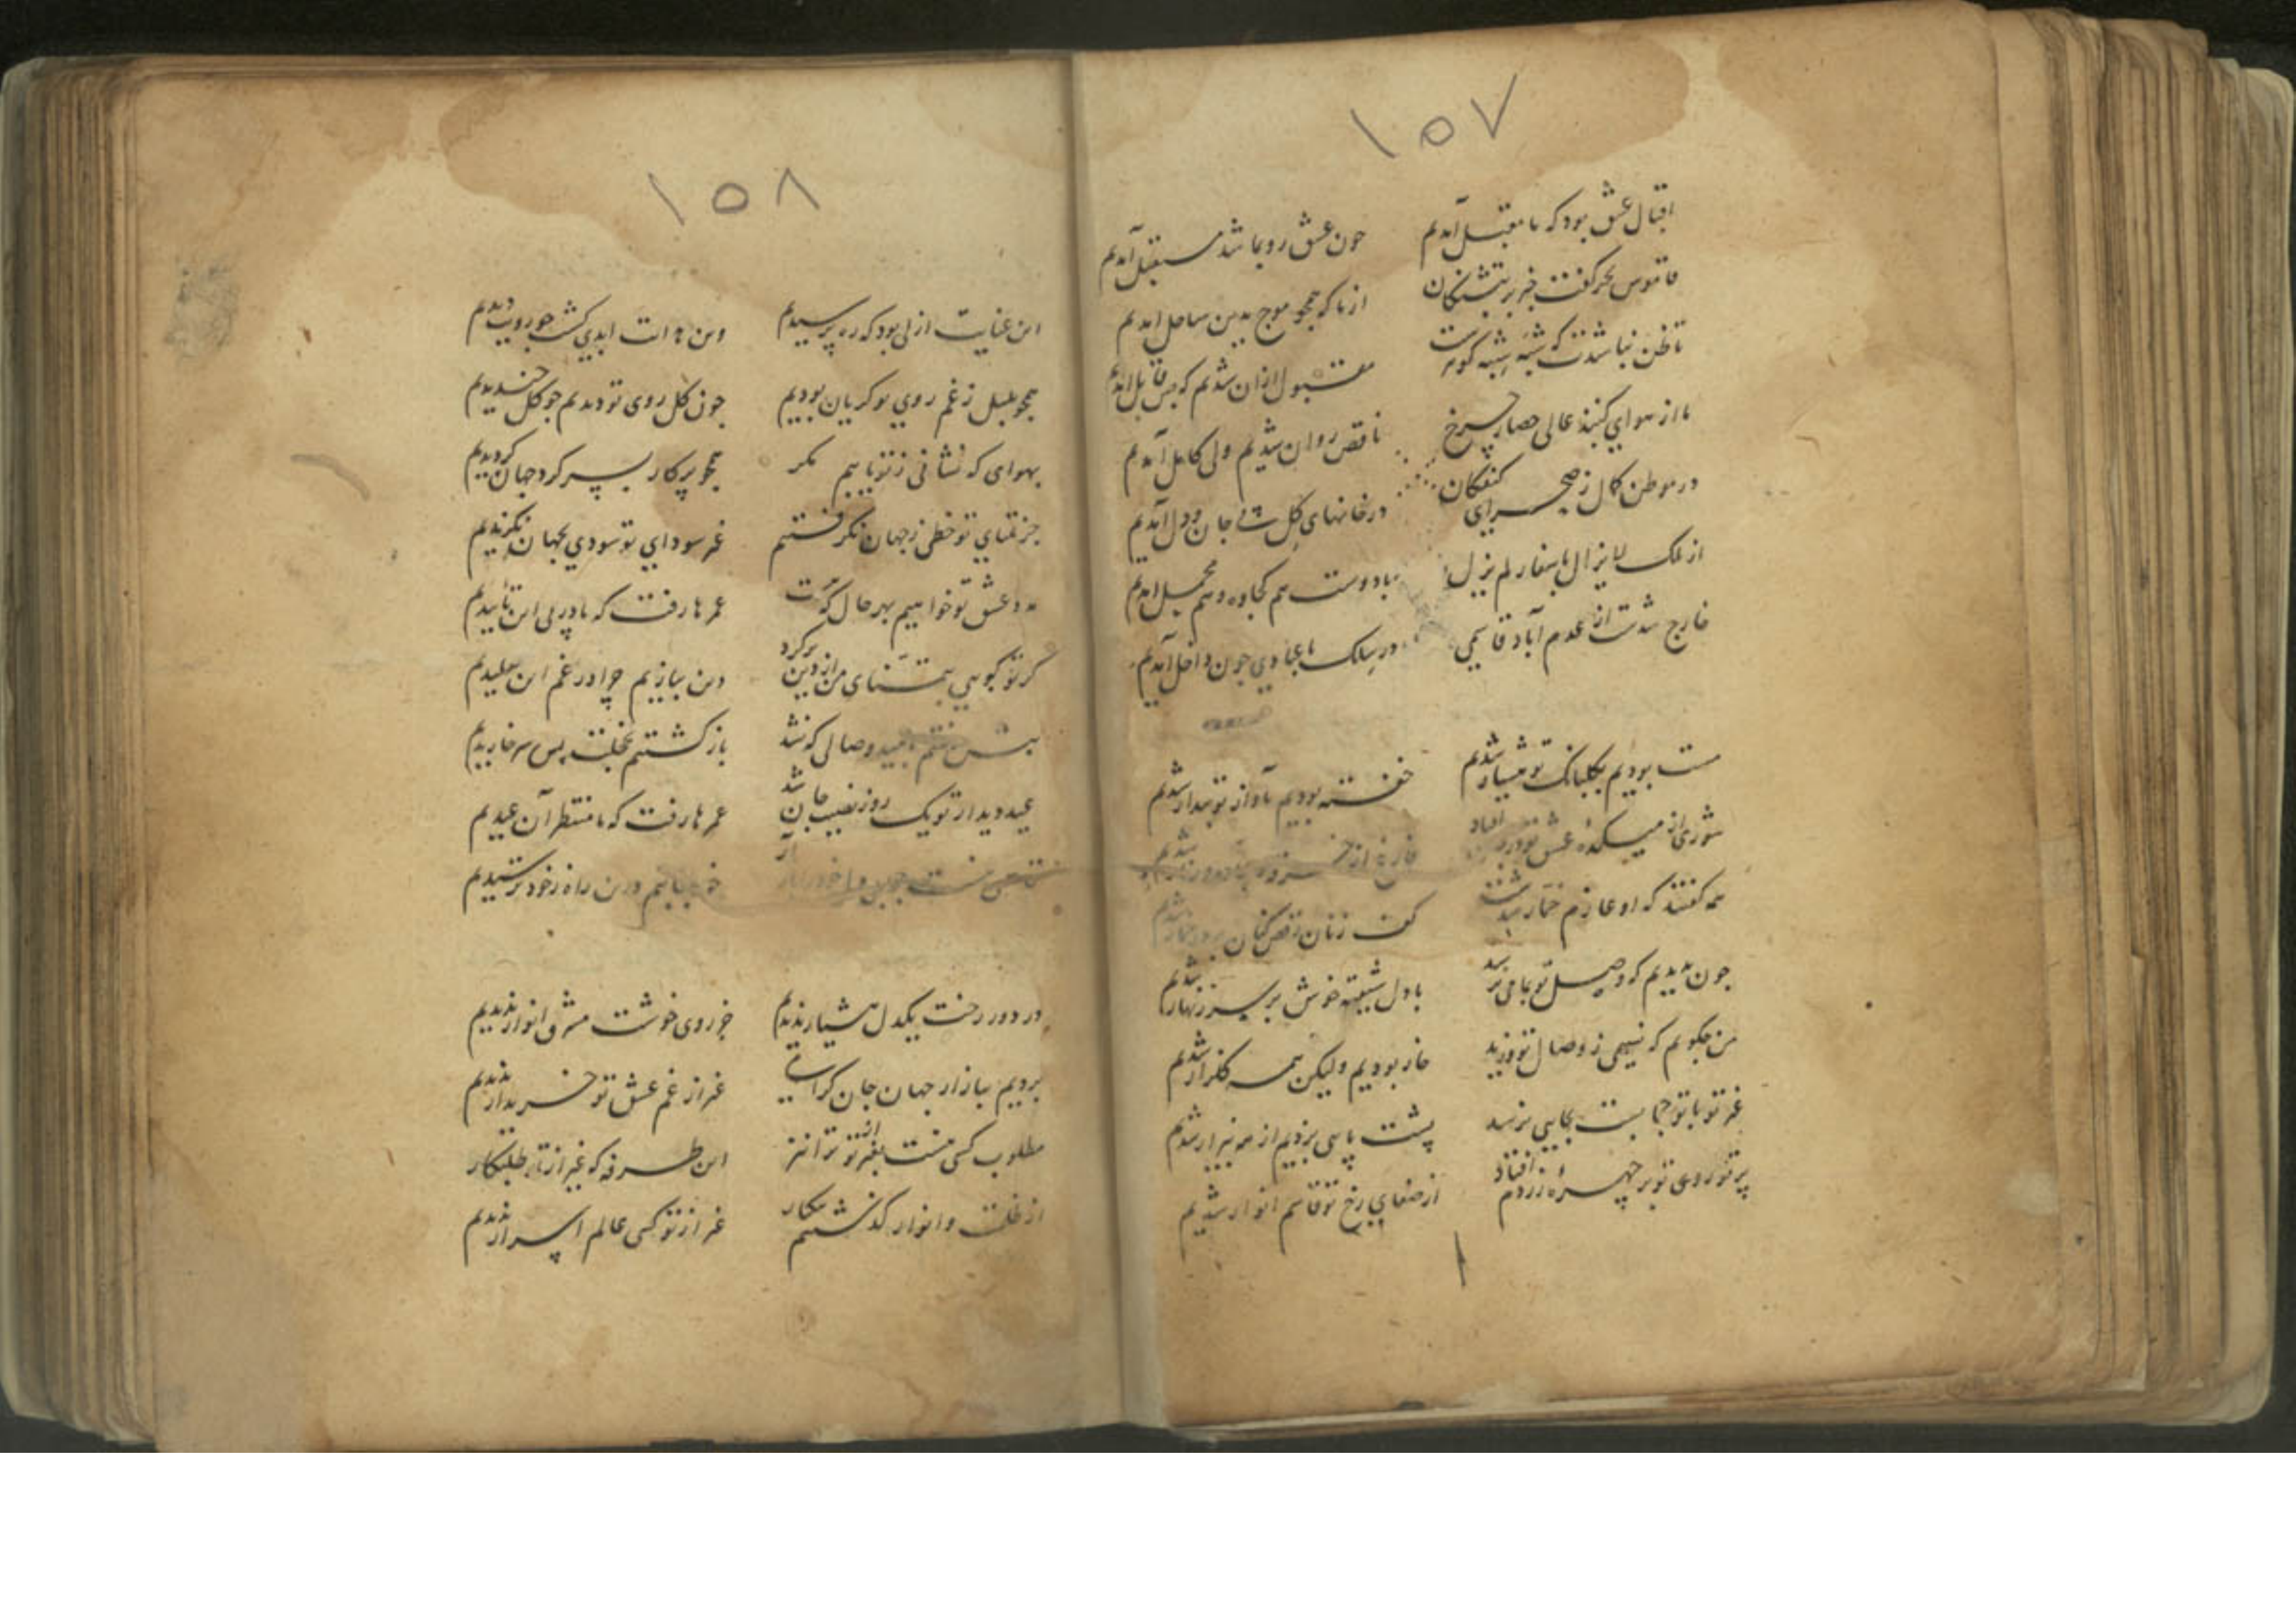 ۱۵۷
اقبال عشق بود که ما مقبل آمدیم چون عشق رو بما شد مستقبل آمدیم
قاموس بحر گفت خبر بر تشنکان از ما که همچو موج بدین ساحل امدیم
تا ظن نباشدت که مقبول ازان شدیم که بس قابل امدیم
ما از هوای کنبذ عالی حصار چرخ ناقص روان شدیم ولی کامل آمدیم
در موطن کمال ز صحرای کنفکان در خانهای کل پی جان و دل آمدیم
از ملک لایزال باسفار لم یزل با دوست هم کجاوه و هم محمل امدیم
خارج شدت از عدم آباد قاسمی در سلک یا عبادی چون داخل آمدیم
مست بودیم بکلبانک تو هشیار شدیم خفته بودیم بآواز تو بیدار شدیم
شوری از میکدهٔ عشق تو در افتاد فارغ از شدیم
همه کفتند که او عازم خمار شدست کف زنان رقص کنان شدیم
چون بدیدیم که وصل تو بما می نرسد با دل شیفته خوش بر سر زنهار شدیم
من چکویم که نسیمی ز وصال تو وزید خار بودیم ولیکن همه کلزار شدیم
غیر تو با تو حجابست بجایی نرسد پشت پایی بزدیم از همه بیزار شدیم
پرتو روی تو بر چهرهٔ زردم افتاد از صفای رخ تو قاسم انوار شدیم
۱۵۸
این عنایت ازلی بود که ره پرسیدیم وین هدایت ابدی کشت چو رویت دیدیم
همچو بلبل ز غم روی تو کریان بودیم چون کل روی تو دیدیم چو کل خندیدیم
بهوای که نشانی ز تو یابیم مکر همچو پرکار بسر کرد جهان کردیدیم
جز تمنای تو حظی ز جهان نکرفتیم غیر سودای تو سودی بجهان نکزیدیم
درد عشق تو خواهیم بهر حال که هست عمرها رفت که ما در پی این تاییدیم
کر تو کویی بتمنای من از دین برکرد دین ببازیم چرا در غم این تقلیدیم
بنشستیم بامید وصالی که نشد باز کشتیم بخجلت پس سر خاریدیم
عید دیدار تو یک روز نصیب جان شد عمرها رفت که ما منتظر آن عیدیم
در این راه ز خود ترسیدیم
در دور رخت یکدل هشیار ندیدیم جز روی خوشت مشرق انوار ندیدیم
بردیم ببازار جهان جان کرامی غیر از غم عشق تو خریدار ندیدیم
مطلوب کسی نیست بغیر از تو این طرفه که غیر از تو طلبکار
از ظلمت و انوار کذشتیم بیکبار غیر از تو کسی عالم اسرار ندیدیم